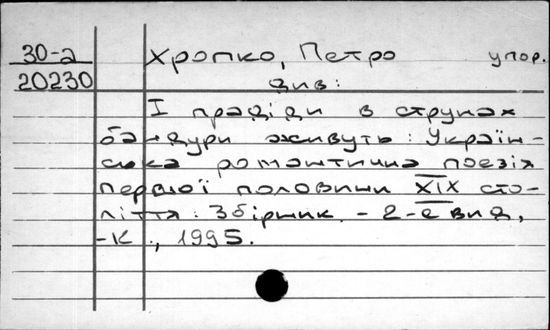 30-а Хропко, Петро упор.
20230 див:
І прадіди в струнах
бандури живуть: Україн-
ська романтична поезія
першої половини XIX сто-
ліття: Збірник. - 2-е вид,
-К., 1995.